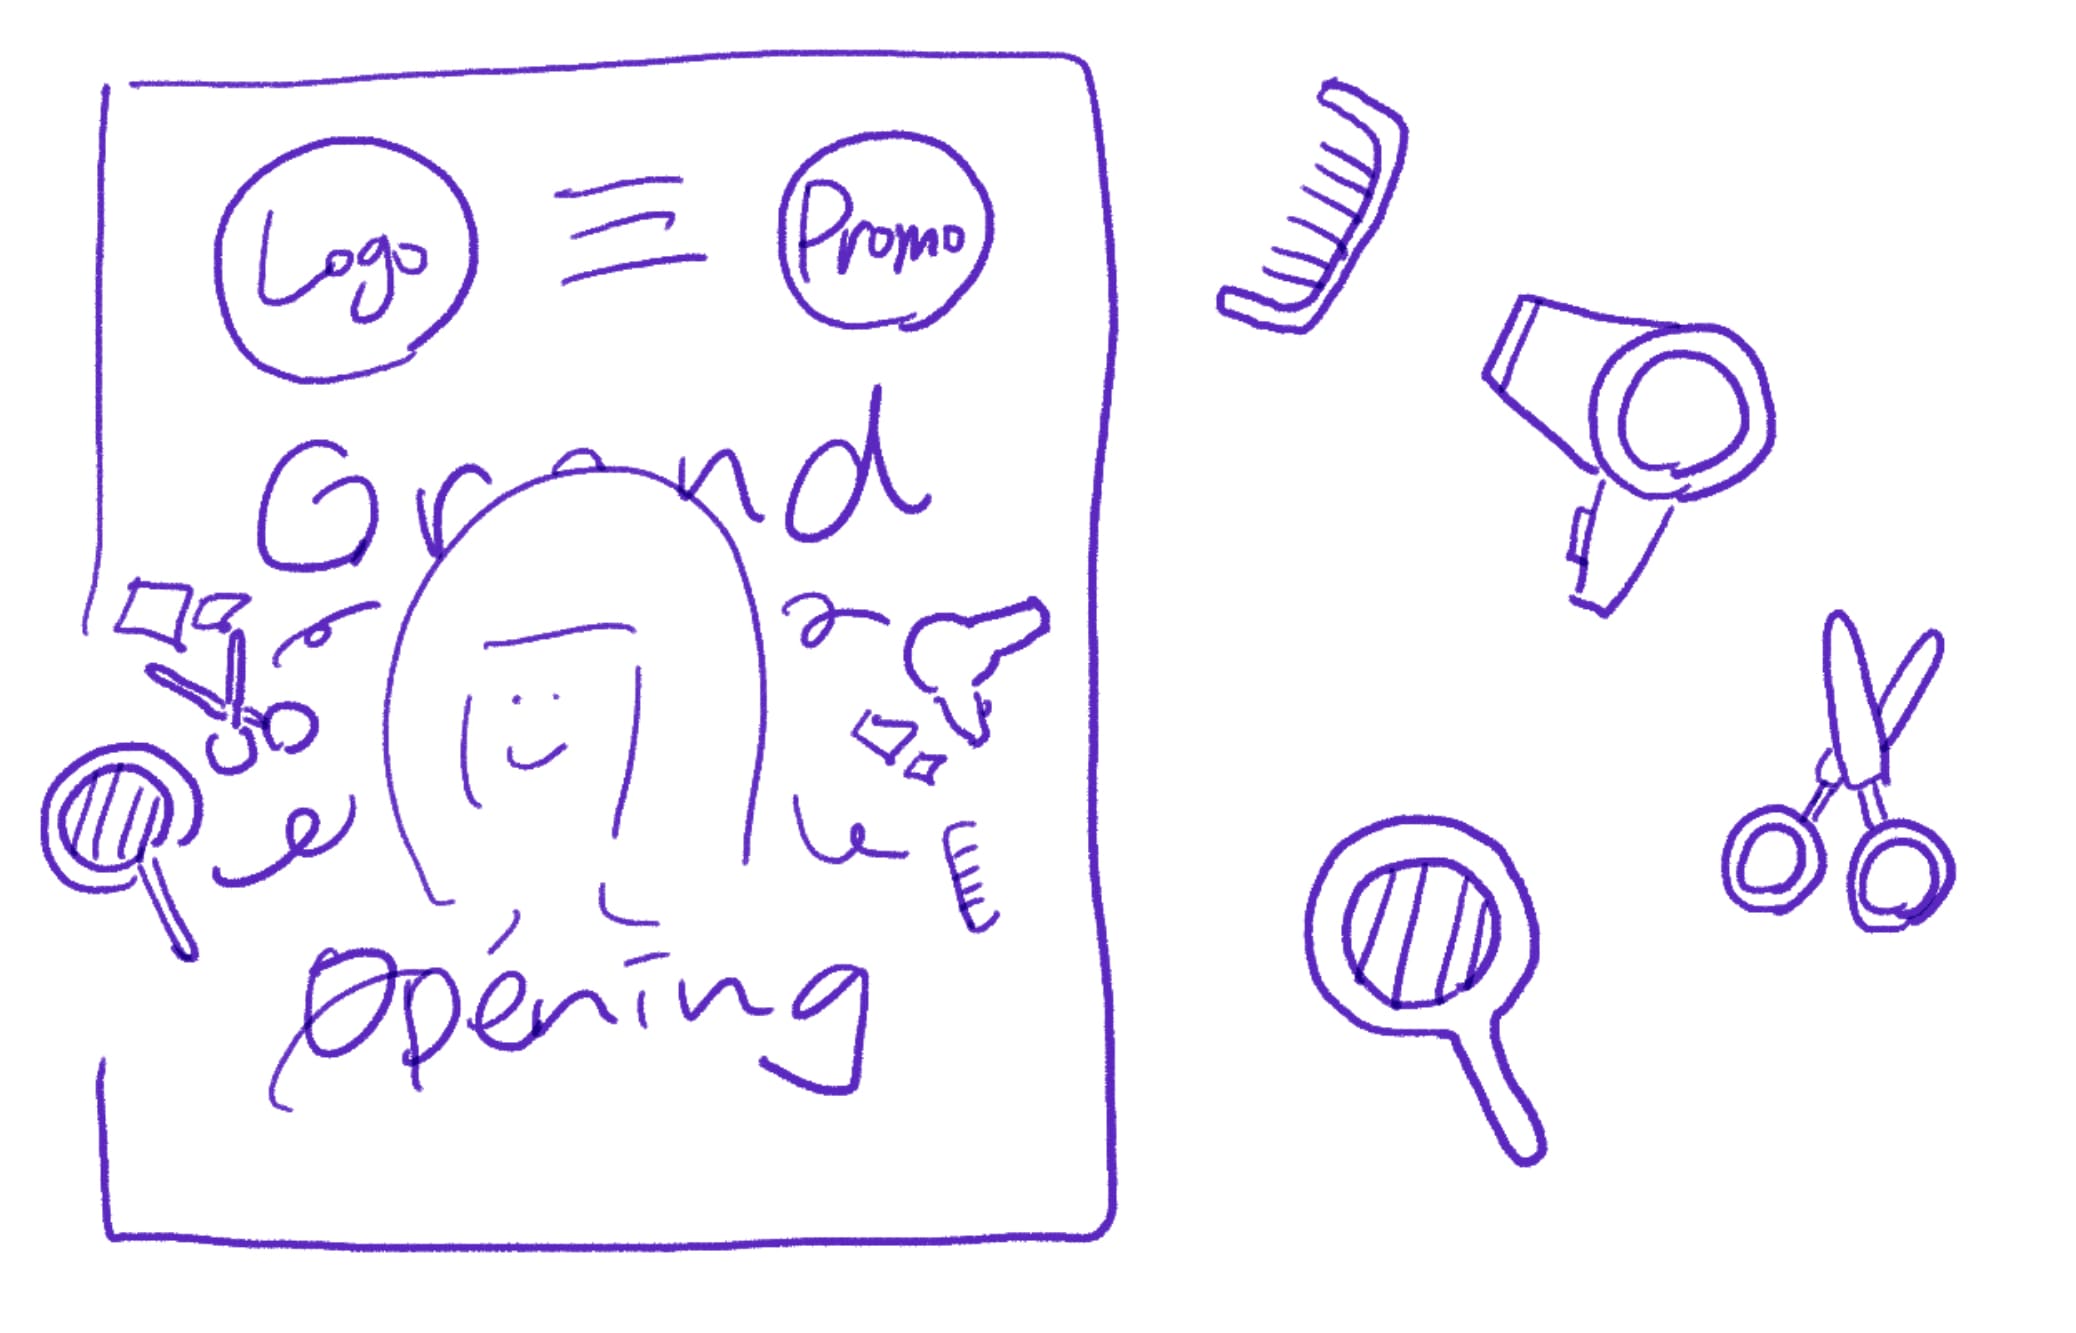 Logo
Promo
Grand
Opening